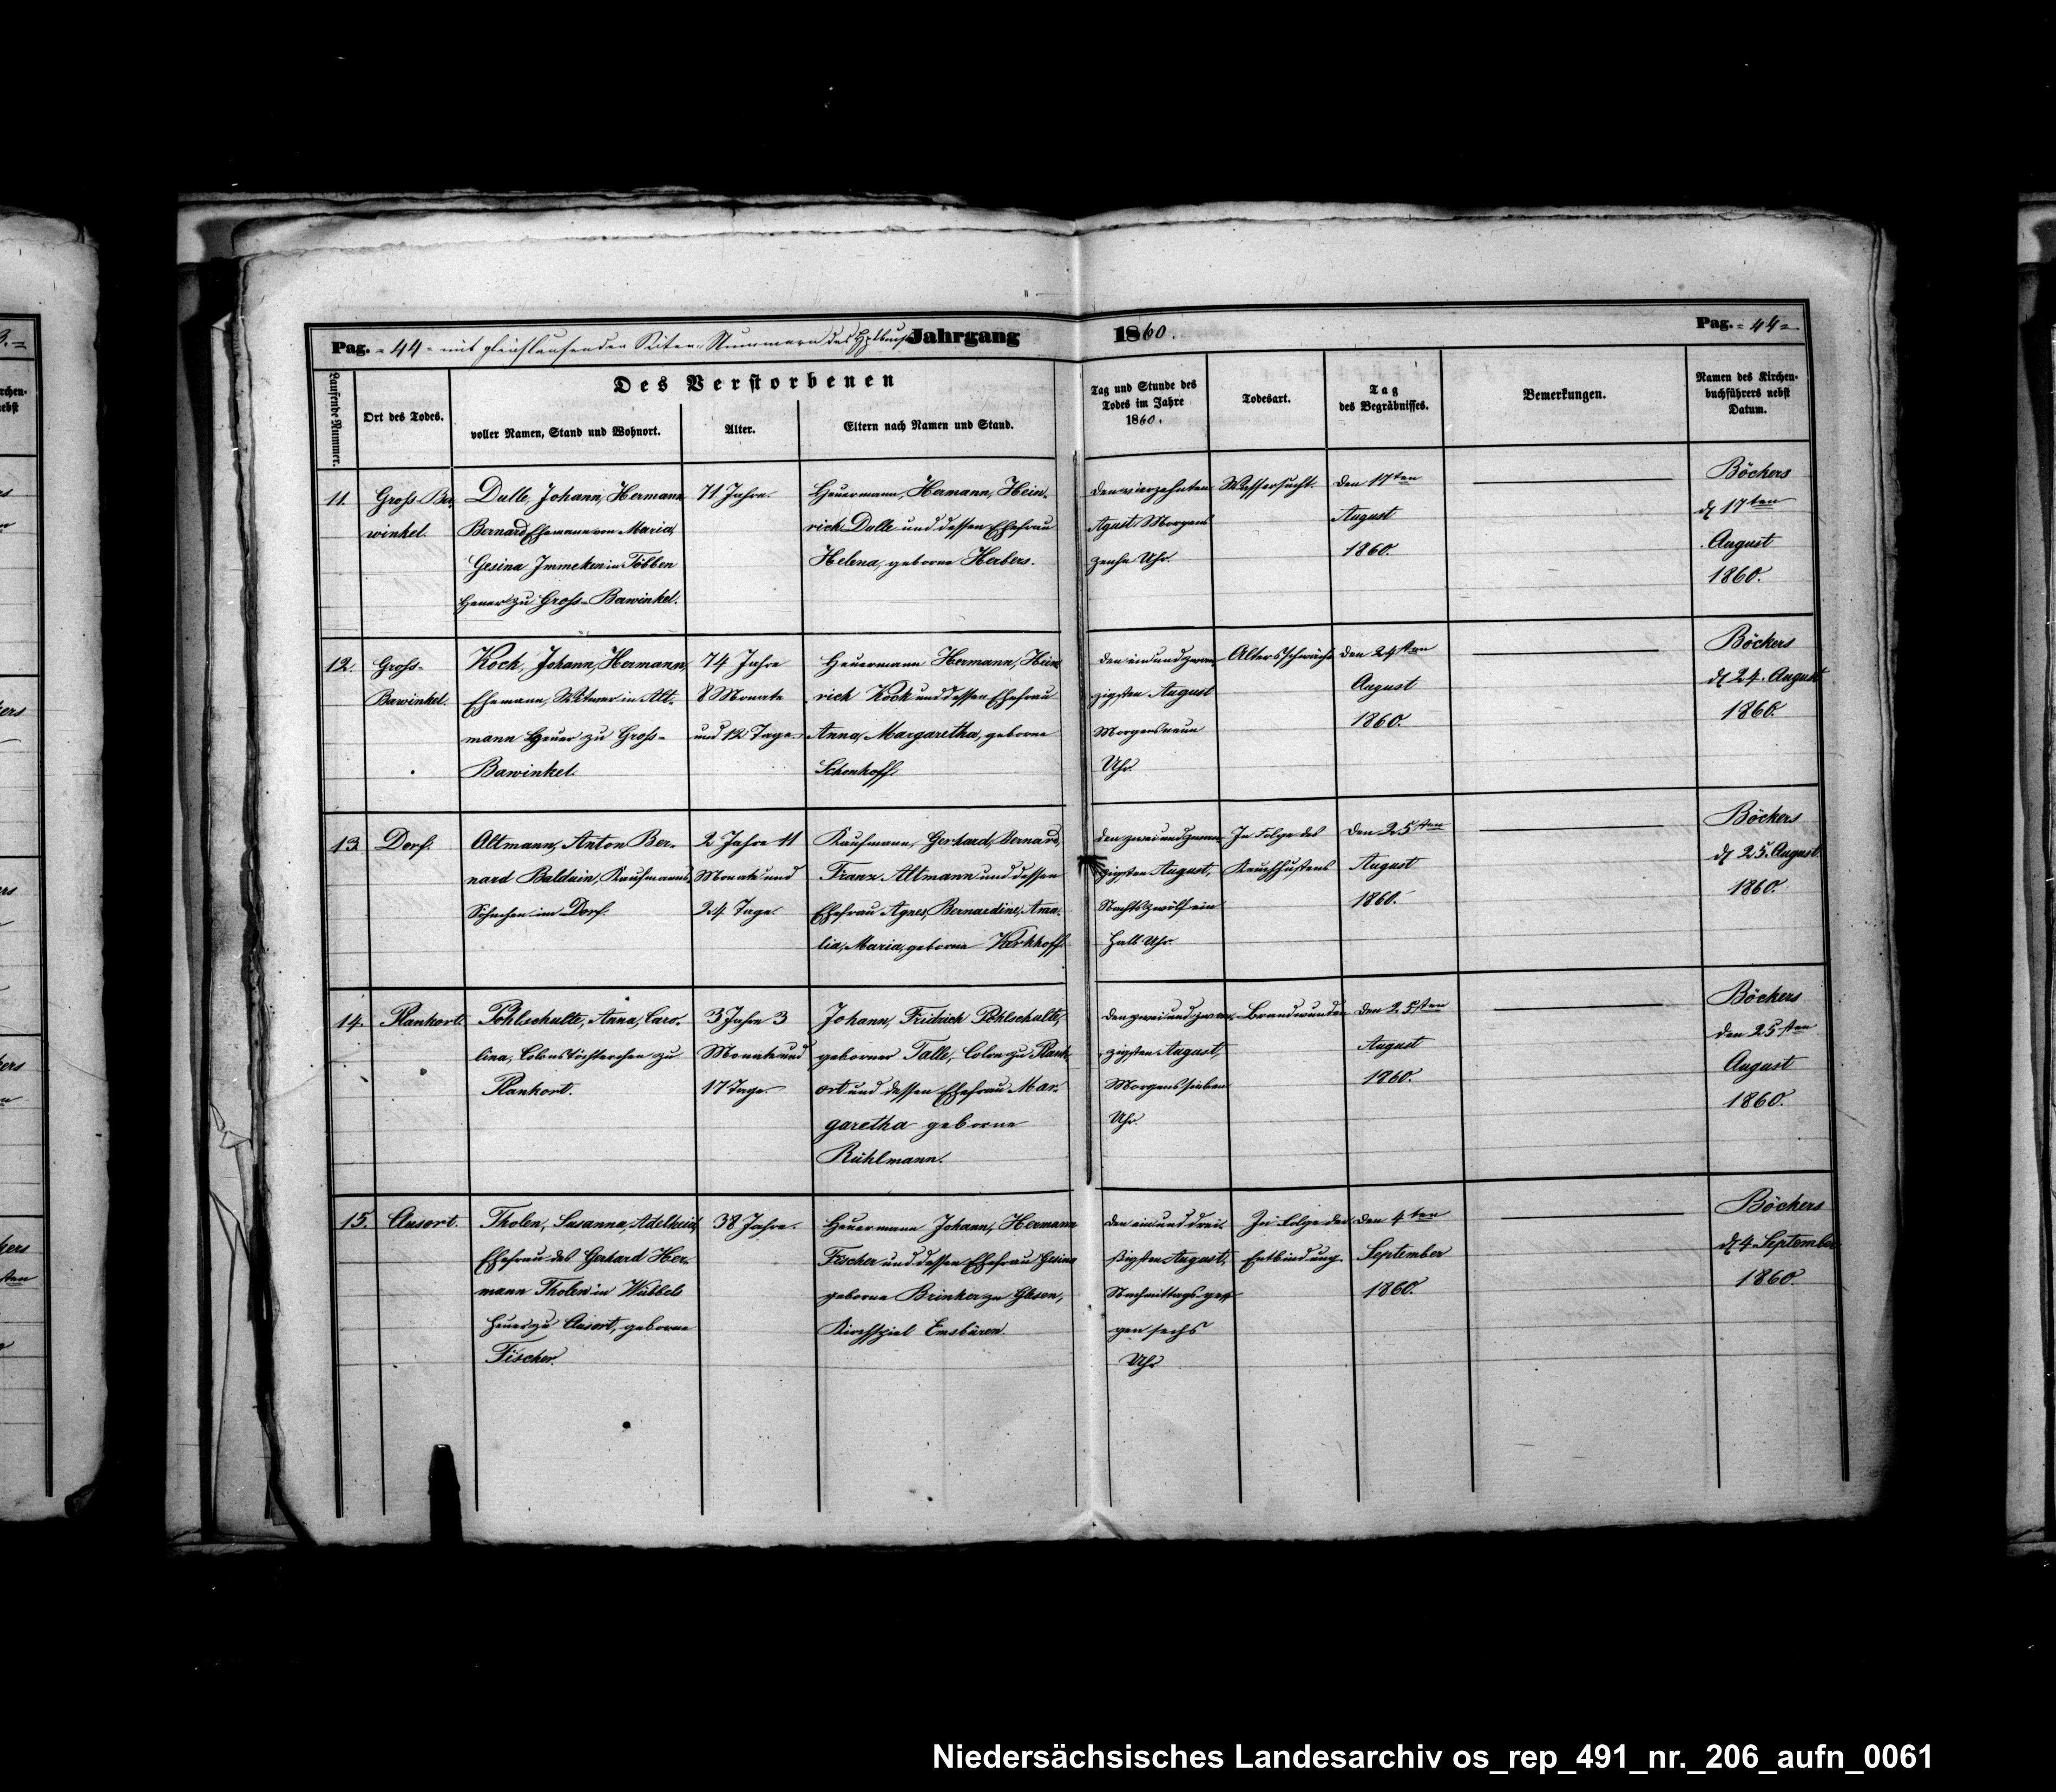 Pag. = 44 = mit gleichlaufenden Seiten-Nummern des Hptbuchs
Jahrgang 1860.
Pag. = 44 =
Laufende Nummer.
Ort des Todes.
Des Verstorbenen
voller Namen, Stand und Wohnort.
Alter.
Eltern nach Namen und Stand.
Tag und Stunde des
Todes im Jahre
1860.
Todesart.
Tag
des Begräbnisses.
Bemerkungen.
Namen des Kirchen-
buchführers nebst
Datum.
11.
Groß-Ba-
winkel.
Dulle, Johann, Hermann
Bernard, Ehemann von Maria,
Gesina Immeken in Többen
Heuer zu Groß-Bawinkel.
71 Jahre.
Heuermann, Hermann, Hein-
rich Dalle und dessen Ehefrau
Helena, geborne Herbers.
den vierzehnten
Agust Morgens
zehn Uhr.
Wassersucht.
den 17ten
August
1860.
Böckers
d 17ten
August
1860.
12.
Groß-
Bawinkel.
Koch, Johann, Hermann,
Ehemann, Witwer in Alt-
mann Heuer zu Groß-
Bawinkel.
74 Jahre
8 Monate
und 12 Tage.
Heuermann Hermann, Hein-
rich Kock und dessen Ehefrau
Anna, Margaretha, geborne
Schonhoff.
den einundzwan-
zigsten August
Morgens neun
Uhr.
Altersschwäche
den 24sten
August
1860.
Böckers
d 24. August
1860.
13.
Dorf.
Altmann, Anton Ber-
nard Balduin, Kaufmanns
Söhnchen im Dorf.
2 Jahre 11
Monate und
24 Tage.
Kaufmann, Gerhard, Bernard,
Franz Altmann und dessen
Ehefrau Agnes, Bernardine, Ama-
lia, Maria, geborne Kerkhoff.
den zweiundzwan-
zigsten August,
Nachts zwölf ein
halb Uhr.
In Folge des
Keuchhustens
den 25sten
August
1860.
Böckers
d 25. August
1860.
14.
Plankort.
Pohlschulte, Anna, Caro-
lina, Colonstöchterchen zu
Plankort.
3 Jahre 3
Monate und
17 Tage.
Johann, Fridrich Pohlschulte,
geborner Talle, Colon zu Plank-
ort und dessen Ehefrau Mar-
garetha geborne
Rühlmann.
den zweiundzwan-
zigsten August,
Morgens sieben
Uhr.
Brandwunden
den 25sten
August
1860.
Böckers
den 25sten
August
1860.
15.
Clusort.
Tholen, Susanna, Adelheid,
Ehefrau des Gerhard Her-
mann Tholen in Wübbels
Heuer zu Clusort, geborne
Fischer.
38 Jahre.
Heuermann Johann, Hermann
Fischer und dessen Ehefrau Gesina
geborne Brinker zu Glesen,
Kirchspiel Emsbüren.
den einunddrei-
ßigsten August,
Nachmittags ge-
gen sechs
Uhr
In Folge der
Entbindung.
den 4ten
September
1860.
Böckers
d 4 September
1860.
Niedersächsisches Landesarchiv os_rep_491_nr._206_aufn_0061